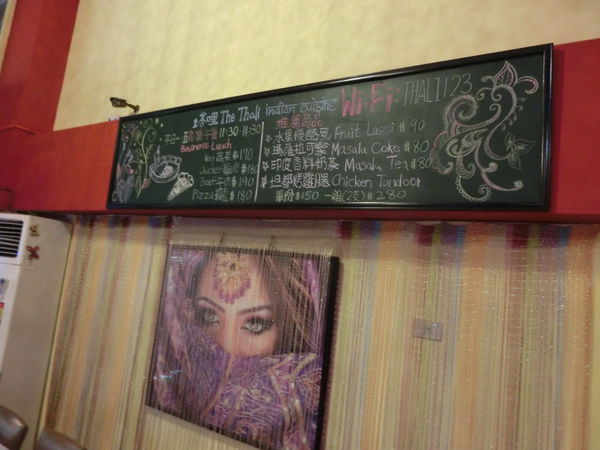 塔哩 The Thali indian cuisine Wi-Fi: THALI1123
平日一~五 商業午餐 11:30-14:30
Business Lunch
Veg 蔬菜 $170
Chicken 雞肉 $180
Beef 牛肉 $190
Pizza $180
推薦商品
水果優酪乳 Fruit Lassi $90
瑪薩拉可樂 Masala Coke $80
印度香料奶茶 Masala Tea $80
坦都烤雞腿 Chicken Tandoor
單份 $150 一組(2支) $280